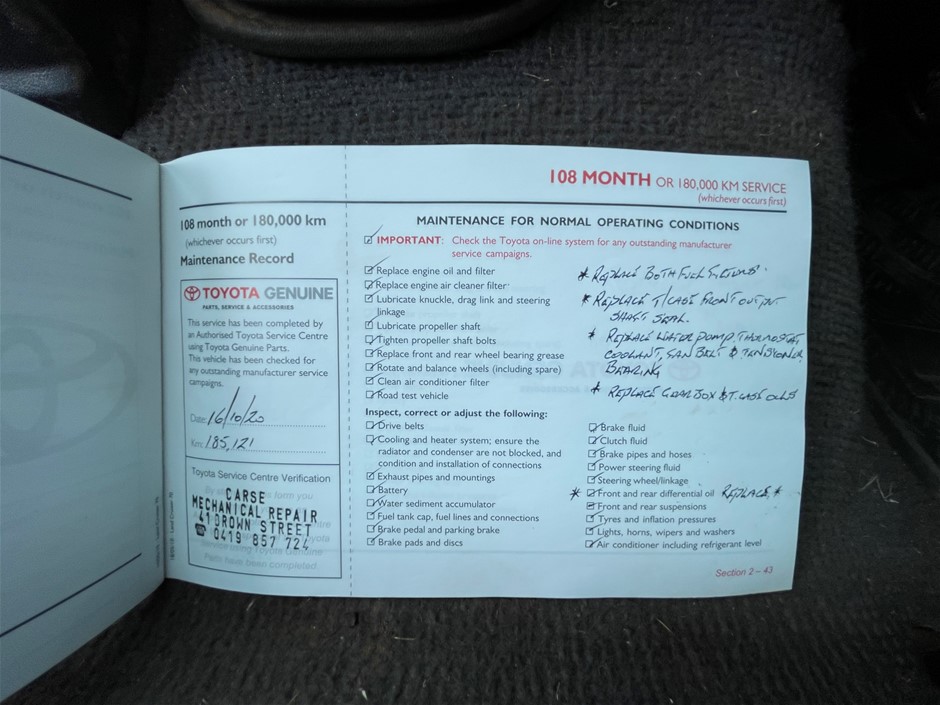 108 MONTH OR 180,000 KM SERVICE
(whichever occurs first)
108 month or 180,000 km
(whichever occurs first)
Maintenance Record
TOYOTA GENUINE
PARTS, SERVICE & ACCESSORIES
This service has been completed by
an Authorised Toyota Service Centre
using Toyota Genuine Parts.
This vehicle has been checked for
any outstanding manufacturer service
campaigns.
Date: 16/10/20
Km: 185,121
Toyota Service Centre Verification
CARSE
MECHANICAL REPAIR
41 BROWN STREET
☎ 0419 857 724
MAINTENANCE FOR NORMAL OPERATING CONDITIONS
IMPORTANT: Check the Toyota on-line system for any outstanding manufacturer
service campaigns.
Replace engine oil and filter
Replace engine air cleaner filter
Lubricate knuckle, drag link and steering
linkage
Lubricate propeller shaft
Tighten propeller shaft bolts
Replace front and rear wheel bearing grease
Rotate and balance wheels (including spare)
Clean air conditioner filter
Road test vehicle
* REPLACE BOTH FUEL FILTERS.
* REPLACE T/CASE FRONT OUTPUT
SHAFT SEAL.
* REPLACE WATER PUMP, THERMOSTAT
COOLANT, FAN BELT & TENSIONER
BEARING
* REPLACE GEARBOX & T.CASE OILS
Inspect, correct or adjust the following:
Drive belts
Cooling and heater system; ensure the
radiator and condenser are not blocked, and
condition and installation of connections
Exhaust pipes and mountings
Battery
Water sediment accumulator
Fuel tank cap, fuel lines and connections
Brake pedal and parking brake
Brake pads and discs
Brake fluid
Clutch fluid
Brake pipes and hoses
Power steering fluid
Steering wheel/linkage
* Front and rear differential oil REPLACE *
Front and rear suspensions
Tyres and inflation pressures
Lights, horns, wipers and washers
Air conditioner including refrigerant level
Section 2 – 43